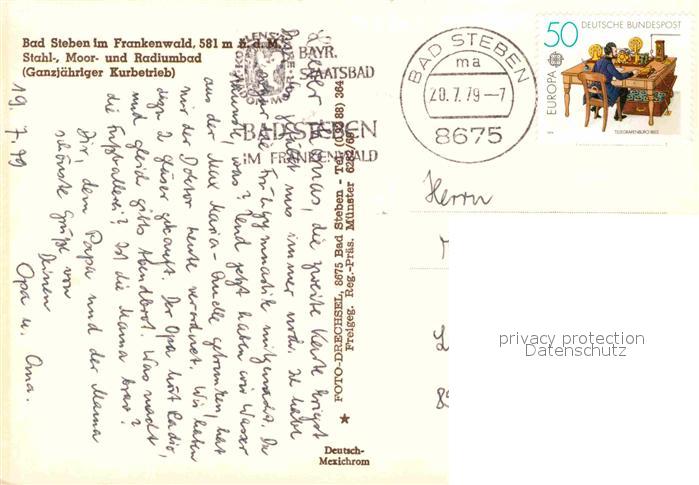 Bad Steben im Frankenwald, 581 m ü. d. M.
Stahl-, Moor- und Radiumbad
(Ganzjähriger Kurbetrieb)
BAYR.
STAATSBAD
BAD STEBEN
IM FRANKENWALD
BAD STEBEN
ma
20.7.79--7
8675
50 DEUTSCHE BUNDESPOST
EUROPA
CEPT
TELEGRAFENBÜRO 1863
19.7.79
Lieber Thomas, die zweite Karte kriegst
gefällt uns immer noch. Ich habe
Frühgymnastik mitgemacht. Da
staunste, was? Und jetzt haben wir Wasser
aus der Max Maria-Quelle getrunken, hat
mir der Doktor heute verordnet. Wir haben
dazu 2 Gläser gekauft. Der Opa hört Radio,
und gleich gibts Abendbrot. Was macht
die Fußballerei? Ist die Mama brav?
Dir, dem Papa und der Mama
schönste Grüße von
Deinen
Opa u. Oma.
FOTO-DRECHSEL, 8675 Bad Steben - Tel. 364
Freigeg. Reg.-Präs. Münster
Deutsch-
Mexichrom
Herrn
privacy protection
Datenschutz